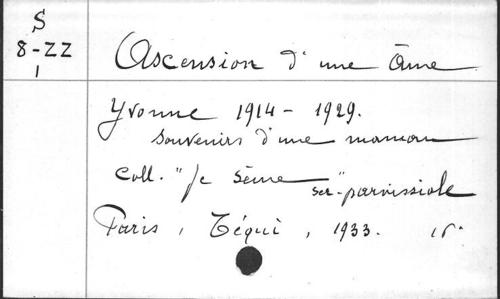 S
8-ZZ
1
Ascension d'une âme
Yvonne 1914 - 1929.
Souvenirs d'une maman
Coll. "Je sème" ser. paroissiale
Paris, Téqui, 1933. 16°